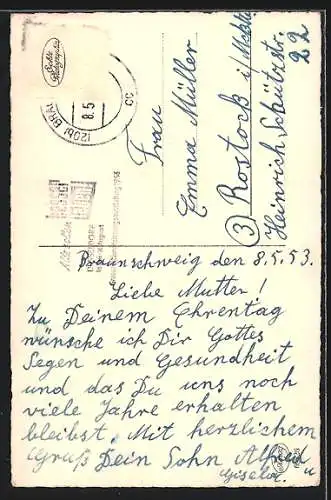 Echte Photographie
(20b) BRAU
8.5
cc
Frau
Emma Müller
(3) Rostock i/Meckl.
Heinrich Schützstr.
22
Braunschweig den 8.5.53.
Liebe Mutter!
Zu Deinem Ehrentag
wünsche ich Dir Gottes
Segen und Gesundheit
und das Du uns noch
viele Jahre erhalten
bleibst. Mit herzlichem
Gruß Dein Sohn Alfred
u Gisela.